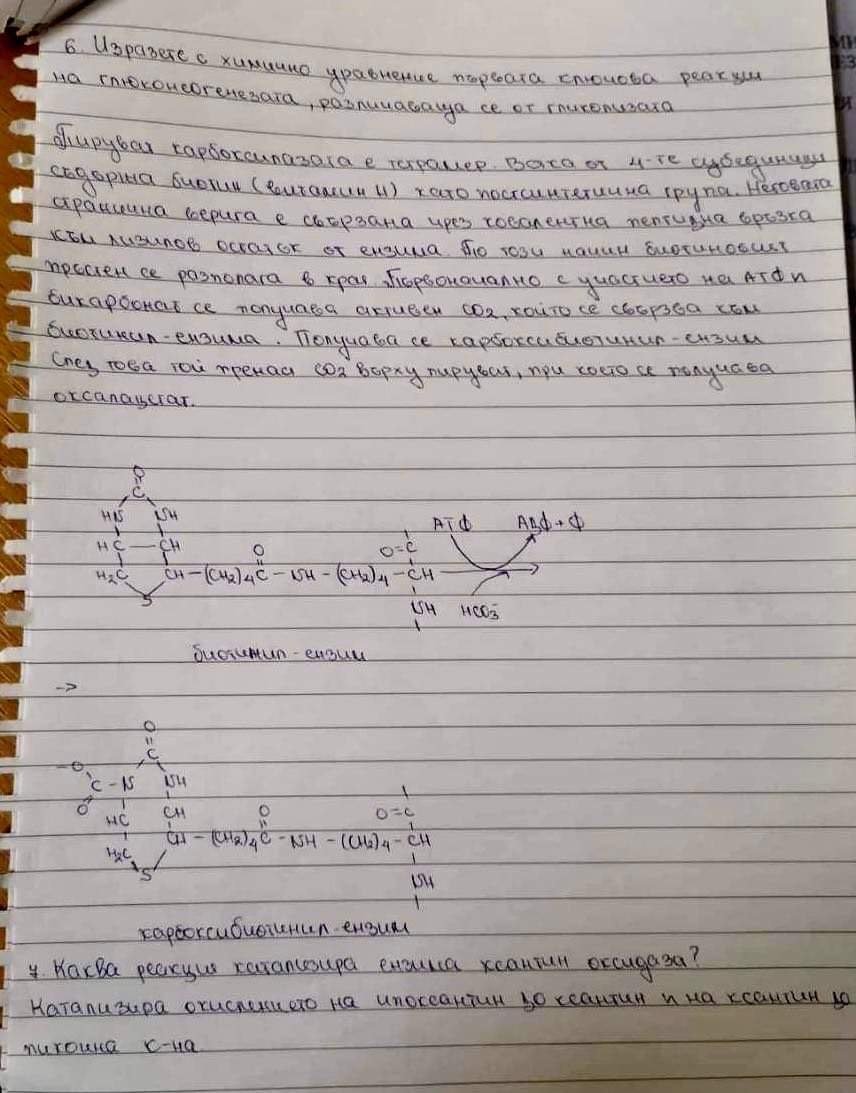 6. Изразете с химично уравнение първата ключова реакция
на глюконеогенезата, различаваща се от гликолизата
Пируват карбоксилазата е тетрамер. Всяка от 4-те субединици
съдържа биотин (витамин H) като простетична група. Неговата
странична верига е свързана чрез ковалентна пептидна връзка
към лизилов остатък от ензима. По този начин биотиновият
пръстен се разполага в края. Първоначално с участието на АТФ и
бикарбонат се получава активен CO2, който се свързва към
биотинил-ензима. Получава се карбоксибиотинил-ензим
След това той пренася CO2 върху пируват, при което се получава
оксалацетат.
O
C
HN NH
HC — CH
H2C CH – (CH2)4 C – NH – (CH2)4 – CH
S
O
O=C
NH
АТФ АДФ + Ф
HCO3-
биотинил-ензим
->
O
C
-O
C – N NH
O
HC CH
H2C CH – (CH2)4 C – NH – (CH2)4 – CH
S
O
O=C
NH
карбоксибиотинил-ензим
7. Каква реакция катализира ензима ксантин оксидаза?
Катализира окислението на хипоксантин до ксантин и на ксантин до
пикочна к-на